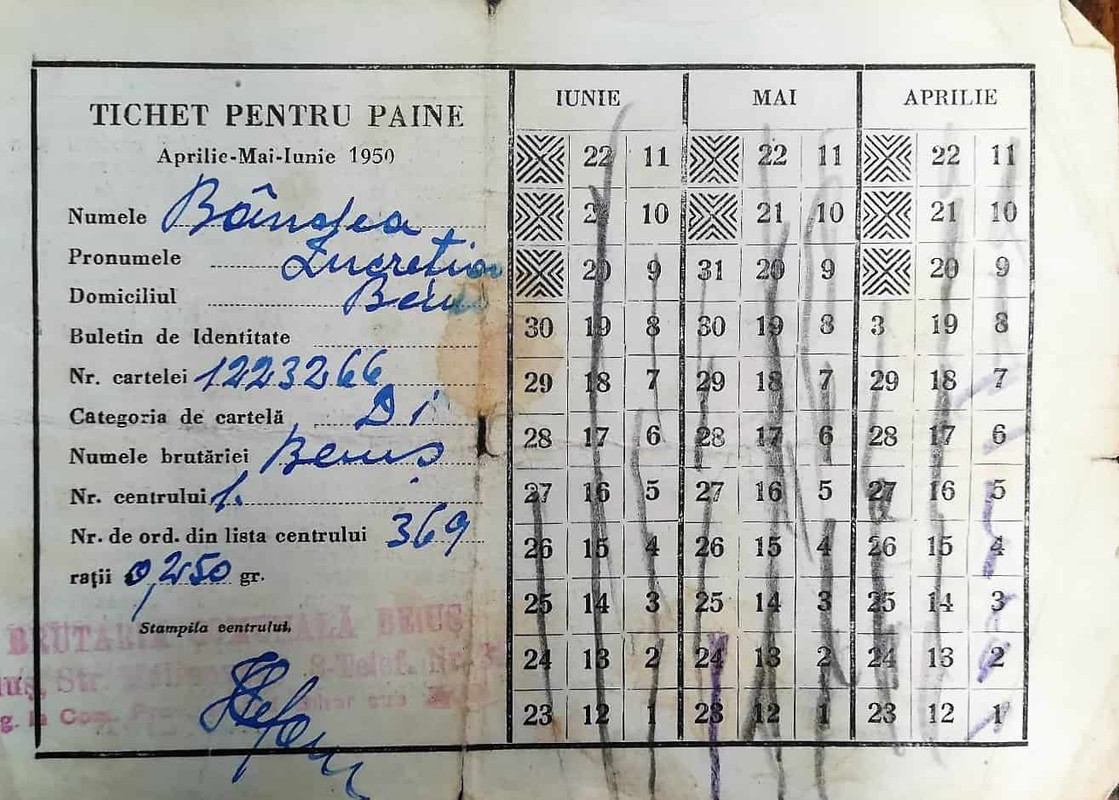 TICHET PENTRU PAINE
Aprilie-Mai-Iunie 1950
Numele
Pronumele Lucreția
Domiciliul Beiuș
Buletin de Identitate
Nr. cartelei 1223266
Categoria de cartelă D i
Numele brutăriei Beiuș
Nr. centrului 1.
Nr. de ord. din lista centrului 369
rații 0,250 gr.
Stampila centrului,
BRUTARIA BEIUȘ
Str. 8-Telef. Nr. 3
IUNIE MAI APRILIE
22 11 22 11 22 11
2 10 21 10 21 10
20 9 31 20 9 20 9
30 19 8 30 19 8 3 19 8
29 18 7 29 18 7 29 18 7
28 17 6 28 17 6 28 17 6
27 16 5 27 16 5 27 16 5
26 15 4 26 15 4 26 15 4
25 14 3 25 14 3 25 14 3
24 13 2 24 13 2 24 13 2
23 12 1 23 12 1 23 12 1